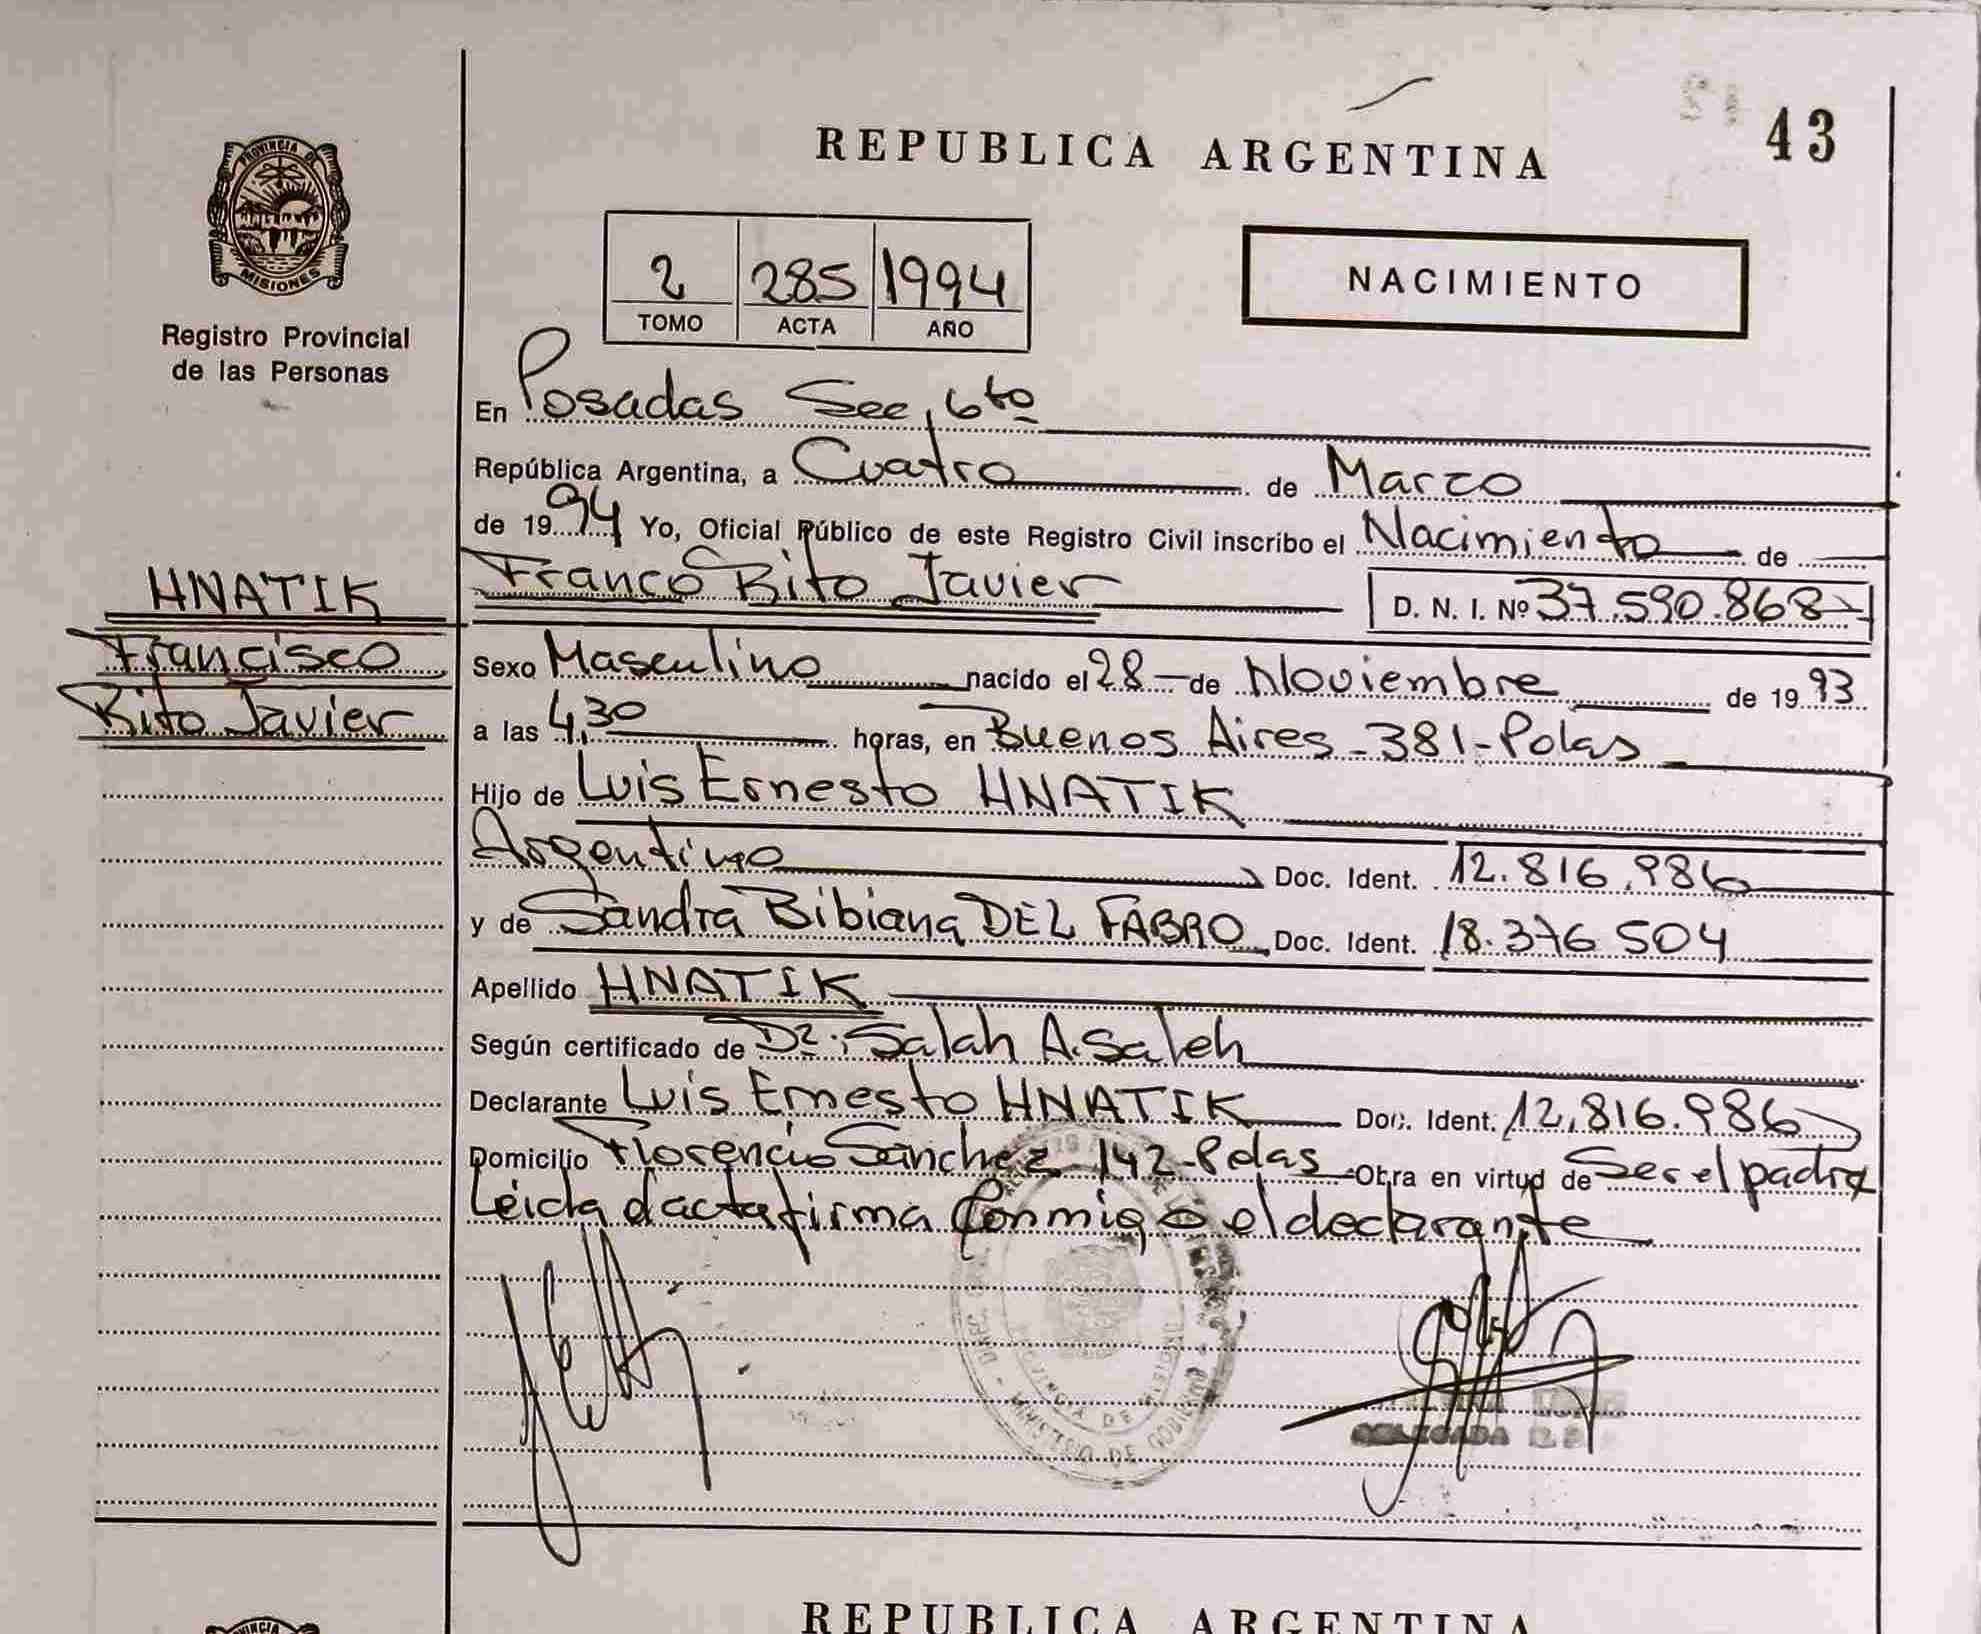 REPUBLICA ARGENTINA
43
PROVINCIA DE
MISIONES
Registro Provincial
de las Personas
2 285 1994
TOMO ACTA AÑO
NACIMIENTO
En Posadas Sec, 6to
República Argentina, a Cuatro de Marzo
de 1994 Yo, Oficial Público de este Registro Civil inscribo el Nacimiento de
Franco Rito Javier D. N. I. Nº 37.590.868
HNATIK
Francisco
Rito Javier
Sexo Masculino nacido el 28 de Noviembre de 1993
a las 4,30 horas, en Buenos Aires - 381 - Pdas
Hijo de Luis Ernesto HNATIK
Argentino Doc. Ident. 12.816.986
y de Sandra Bibiana DEL FABRO Doc. Ident. 18.376 504
Apellido HNATIK
Según certificado de Dr. Salah A. Saleh
Declarante Luis Ernesto HNATIK Doc. Ident. 12.816.986
Domicilio Florencio Sánchez 142 - Pdas Obra en virtud de Ser el padre
Leida el acta firma Conmigo el declarante
MINISTRO DE GOBIERNO
PROVINCIA DE
DELEGADA
REPUBLICA ARGENTINA